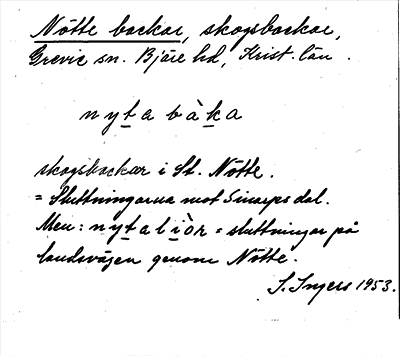 Nötte backar, skogsbackar,
Grevie sn. Bjäre hd, Krist. län.
nyta bàka
skogsbackar i St. Nötte.
= Sluttningarna mot Sinarpsdal.
Men: nytaliòr = sluttningar på
landsvägen genom Nötte.
I. Ingers 1953.